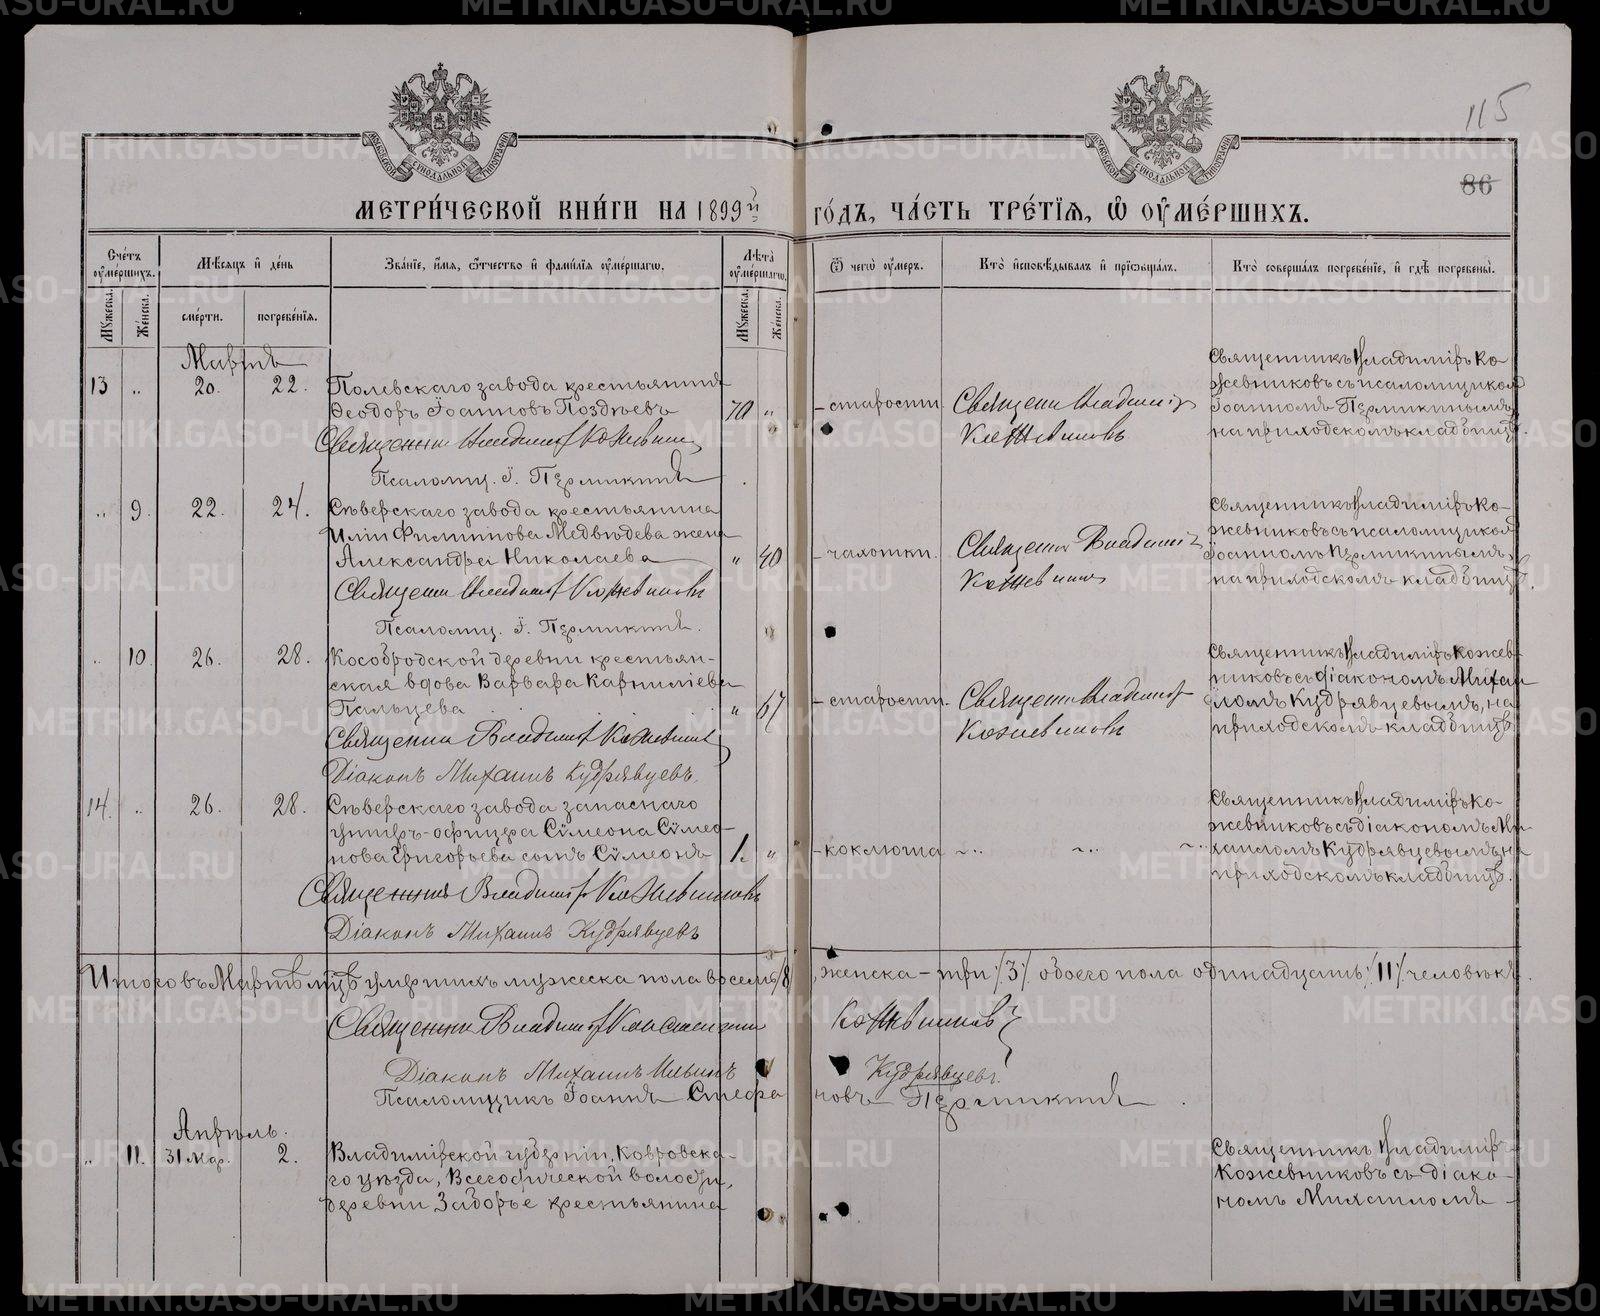 115
86
МЕТРИ́ЧЕСКОЙ КНИ́ГИ НА 1899й ГО́ДЪ, ЧА́СТЬ ТРЕ́ТІѦ, Ѡ҆ ОУ҆МЕ́РШИХЪ.
Счетъ оумершихъ.
Мужеска.
Женска.
Мѣсяцъ и день
смерти.
погребенія.
Званіе, имя, отчество и фамилія оумершагѡ.
Лѣта оумершагѡ.
Мужеска.
Женска.
Ѿ чегѡ оумеръ.
Кто исповѣдывалъ и пріѡбщалъ.
Кто совершалъ погребеніе, и гдѣ погребены.
Мартъ
13 „ 20. 22. Полевскаго завода крестьянинъ
Ѳеодоръ Іоанновъ Поздѣевъ 70 „
Священник Владимір Кожевников
Псаломщ. І. Пермикинъ
- старости.
Священн Владимір
Кожевниковъ
Священникъ Владиміръ Ко-
жевниковъ съ псаломщикомъ
Іоанномъ Пермикинымъ,
на приходскомъ кладбищѣ.
„ 9. 22. 24. Сѣверскаго завода крестьянина
Иліи Филиппова Медвѣдева жена
Александра Николаева „ 40
Священн Владимір Кожевниковъ
Псаломщ. І. Пермикинъ.
- чахотки.
Священн Владимір
Кожевников
Священникъ Владиміръ Ко-
жевниковъ съ псаломщикомъ
Іоанномъ Пермикинымъ,
на приходскомъ кладбищѣ.
„ 10. 26. 28. Кособродской деревни крестьян-
ская вдова Варвара Карниліева
Пальцева „ 67
Священник Владимір Кожевников
Діаконъ Михаилъ Кудрявцевъ.
- старости.
Священн Владимір
Кожевниковъ
Священникъ Владиміръ Кожев-
никовъ съ діакономъ Миха-
иломъ Кудрявцевымъ, на
приходскомъ кладбищѣ.
14. „ 26. 28. Сѣверскаго завода запаснаго
унтеръ-офицера Сѵмеона Сѵмео-
нова Григорьева сынъ Сѵмеонъ 1. „
Священник Владимір Кожевниковъ
Діаконъ Михаилъ Кудрявцевъ
- коклюша
Священникъ Владиміръ Ко-
жевниковъ съ діакономъ Ми-
хаиломъ Кудрявцевымъ, на
приходскомъ кладбищѣ.
Итого въ Мартѣ м҃цѣ умершихъ мужеска пола восемь /8/, женска - три /3/ обоего пола одиннадцать /11/ человѣкъ.
Священник Владимір Кожевников
Діаконъ Михаилъ Ильинъ Кудрявцевъ.
Псаломщикъ Іоаннъ Стефановъ Пермикинъ.
Апрѣль.
„ 11. 31 Мар. 2. Владимірской губерніи, Ковровска-
го уѣзда, Всегодической волости,
деревни Задорье крестьянина
Священникъ Владиміръ
Кожевниковъ съ діако-
номъ Михаиломъ
METRIKI.GASO-URAL.RU